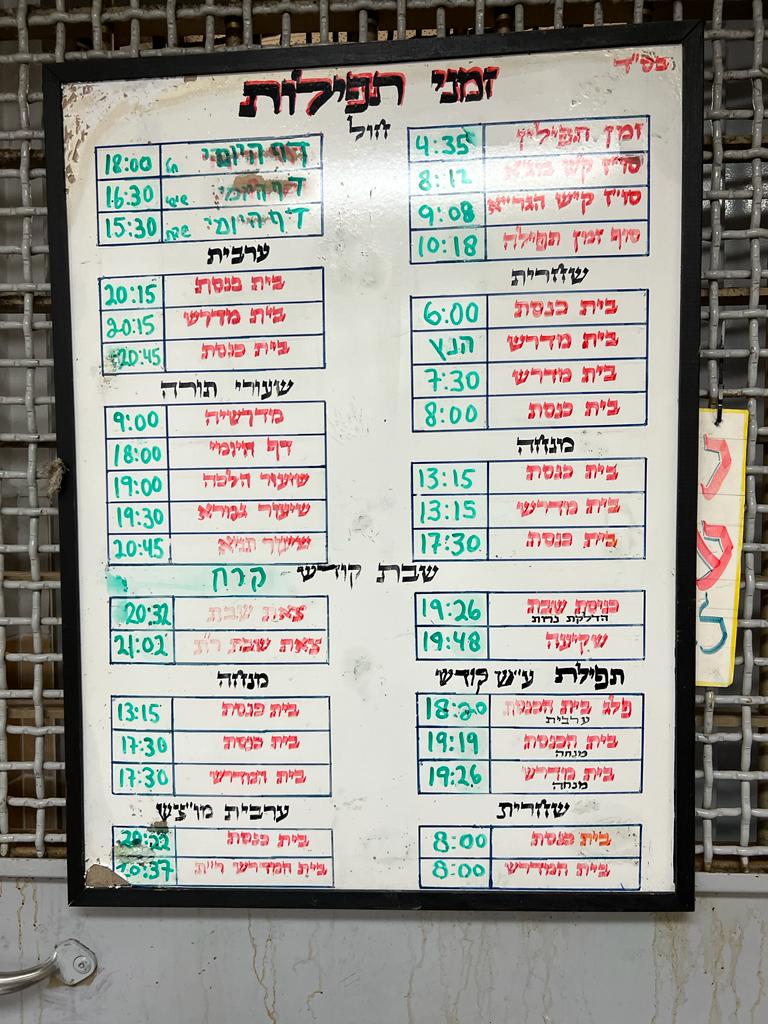 בס"ד
זמני תפילות
חול
זמן תפילין 4:35
סו"ז ק"ש מג"א 8:12
סו"ז ק"ש הגר"א 9:08
סוף זמן תפילה 10:18
שחרית
בית כנסת 6:00
בית מדרש הנץ
בית מדרש 7:30
בית כנסת 8:00
מנחה
בית כנסת 13:15
בית מדרש 13:15
בית כנסת 17:30
דף היומי 18:00
דף היומי שישי 16:30
דף היומי שבת 15:30
ערבית
בית כנסת 20:15
בית מדרש 20:15
בית כנסת 20:45
שעורי תורה
מדרשיה 9:00
דף היומי 18:00
שיעור הלכה 19:00
שיעור גמרא 19:30
שיעור תניא 20:45
שבת קודש - קרח
כניסת שבת 19:26
הדלקת נרות
שקיעה 19:48
תפילת ע"ש קודש
פלג בית הכנסת 18:20
ערבית
בית הכנסת 19:19
מנחה
בית מדרש 19:26
מנחה
שחרית
בית כנסת 8:00
בית המדרש 8:00
צאת שבת 20:32
צאת שבת ר"ת 21:02
מנחה
בית כנסת 13:15
בית כנסת 17:30
בית המדרש 17:30
ערבית מוצ"ש
בית כנסת
בית המדרש ר"ת